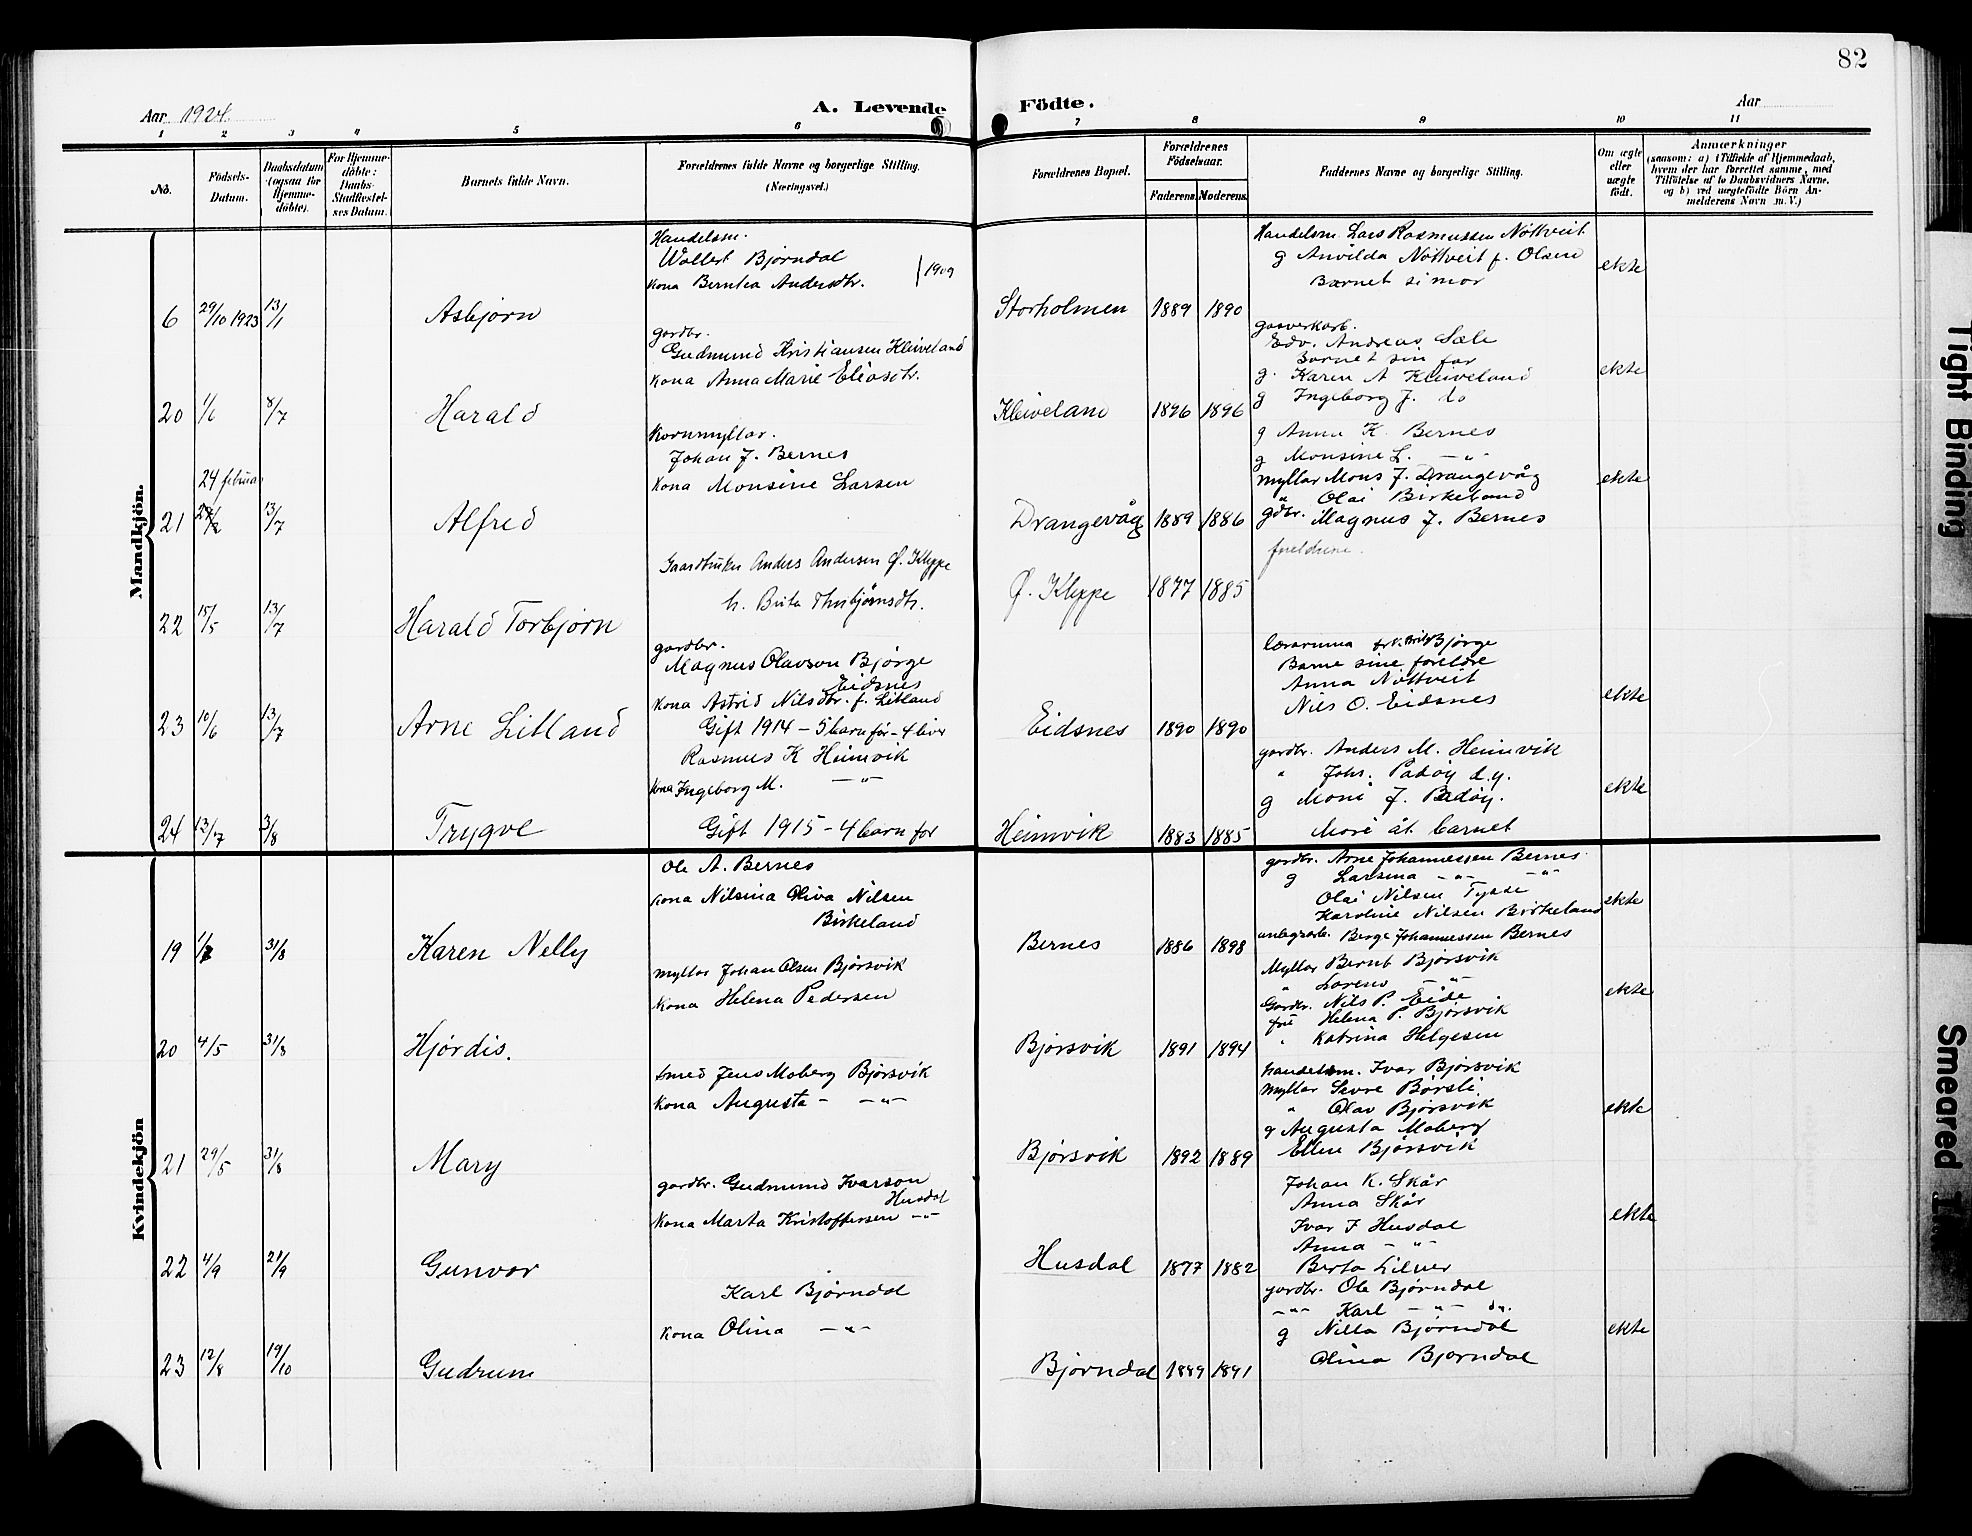 82
Aar 1924.
A. Levende Födte.
Aar
1 2 3 4 5 6 7 8 9 10 11
No.
Födsels-
Datum.
Daabsdatum
(ogsaa for
Hjemme-
döbte).
For Hjemme-
döbte:
Daabs-
Stadfæstel-
ses Datum.
Barnets fulde Navn.
Forældrenes fulde Navne og borgerlige Stilling.
(Næringsvei.)
Forældrenes Bopæl.
Forældrenes
Födselsaar.
Faderens. Moderens.
Faddernes Navne og borgerlige Stilling.
Om ægte
eller
uægte
födt.
Anmærkninger
(saasom: a) i Tilfælde af Hjemmedaab,
hvem der har forrettet samme, med
Tilföielse af to Daabsvidners Navne,
og b) ved uægtefödte Börn An-
melderens Navn m. V.)
Mandkjön.
6 29/10 1923 13/1 Asbjørn
Handelsm.
Wollert Bjørndal
kona Berntea Andersdtr. } 1909
Storholmen 1889 1890
Handelsm. Lars Rasmussen Nøttveit
g Anvilda Nøttveit f. Olsen
Barnet si mor
ekte
20 1/6 8/7 Harald
gardbr.
Gudmund Kristiansen Kleiveland
kona Anna Marie Eliasdtr.
Kleiveland 1896 1896
gasverkarb.
Edv. Andreas Sæle
Barnet sin far
g. Karen A Kleiveland
g Ingeborg J. do
ekte
24 februar
21 24/2 13/7 Alfred
Kornmyllar.
Johan J. Bernes
kona Monsine Larsen
Drangevåg 1889 1886
g Anna K. Bernes
g Monsine L. -"-
myllar Mons J. Drangevåg
" Olai Birkeland
gdbr. Magnus J. Bernes
ekte
22 15/5 13/7 Harald Torbjørn
Gaardbruker Anders Andersen Ø. Kleppe
h. Brita Thorbjørnsdtr.
Ø. Kleppe 1877 1885
foreldrene.
23 10/6 13/7 Arne Litland
gardbr.
Magnus Olavson Bjørge
Eidsnes
kona Astrid Nilsdtr. f. Litland
Gift 1914 – 5 barn før – 4 liver
Eidsnes 1890 1890
lærarinna Brita Bjørge
Barne sine foreldre
Anna Nøttveit
Nils O. Eidsnes
ekte
24 13/7 3/8 Trygve
Rasmus K Heimvik
kona Ingeborg M. -"-
Gift 1915 – 4 barn før
Heimvik 1883 1885
gardbr. Anders M. Heimvik
" Johs. Padøy d.y.
g Moni J. Padøy.
Mori åt barnet
ekte
Kvindekjön
19 31/8 Karen Nelly
Ole A. Bernes
kona Nilsina Oliva Nilsen
Birkeland
Bernes 1886 1898
gardbr. Arne Johannessen Bernes
g Larsina -"- -"-
Olai Nilsen Tysse
Karoline Nilsen Birkeland
anlegsarb. Berge Johannessen Bernes
ekte
20 4/5 31/8 Hjørdis.
Myllar Johan Olsen Bjørsvik
kona Helena Pedersen
Bjørsvik 1891 1894
Myllar Bernt Bjørsvik
" Lorens -"-
Gardbr. Nils P. Eide
frk Helena P. Bjørsvik
" Katrina Helgesen
ekte
21 29/5 31/8 Mary
Smed Jens Moberg Bjørsvik
kona Augusta - -"-
Bjørsvik 1892 1889
handelsm. Ivar Bjørsvik
myllar Severe Børsli
" Olav Bjørsvik
g Augusta Moberg
Ellen Bjørsvik
ekte
22 4/9 21/9 Gunvor
gardbr. Gudmund Ivarson
Husdal
kona Marta Kristoffersen -"-
Husdal 1877 1882
Johan K. Skår
Anna Skår
Ivar J Husdal
Anna -"-
Berta Lilner
ekte
23 12/8 19/10 Gudrun
Karl Bjørndal
kona Olina -"-
Bjørndal 1889 1891
gardbr. Ole Bjørndal
-"- Karl -"- do.
g Nilla Bjørndal
Olina Bjørndal
ekte
Tight Binding
Smeared